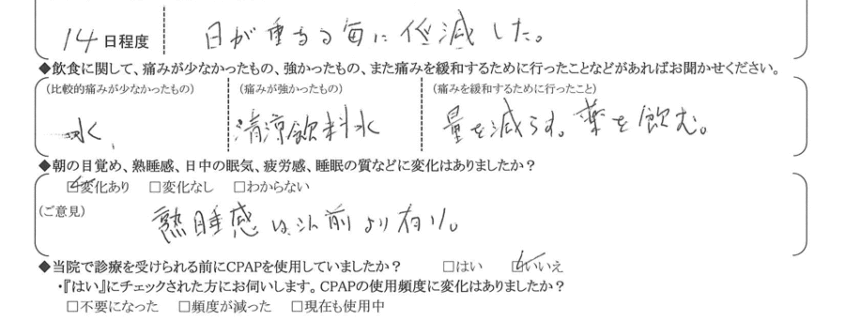 14日程度 日が重なる毎に低減した。
◆飲食に関して、痛みが少なかったもの、強かったもの、また痛みを緩和するために行ったことなどがあればお聞かせください。
(比較的痛みが少なかったもの) (痛みが強かったもの) (痛みを緩和するために行ったこと)
水、 清涼飲料水 量を減らす。薬を飲む。
◆朝の目覚め、熟睡感、日中の眠気、疲労感、睡眠の質などに変化はありましたか？
☑変化あり □変化なし □わからない
(ご意見)
熟睡感は以前より有り。
◆当院で診療を受けられる前にCPAPを使用していましたか？ □はい ☑いいえ
・『はい』にチェックされた方にお伺いします。CPAPの使用頻度に変化はありましたか？
□不要になった □頻度が減った □現在も使用中